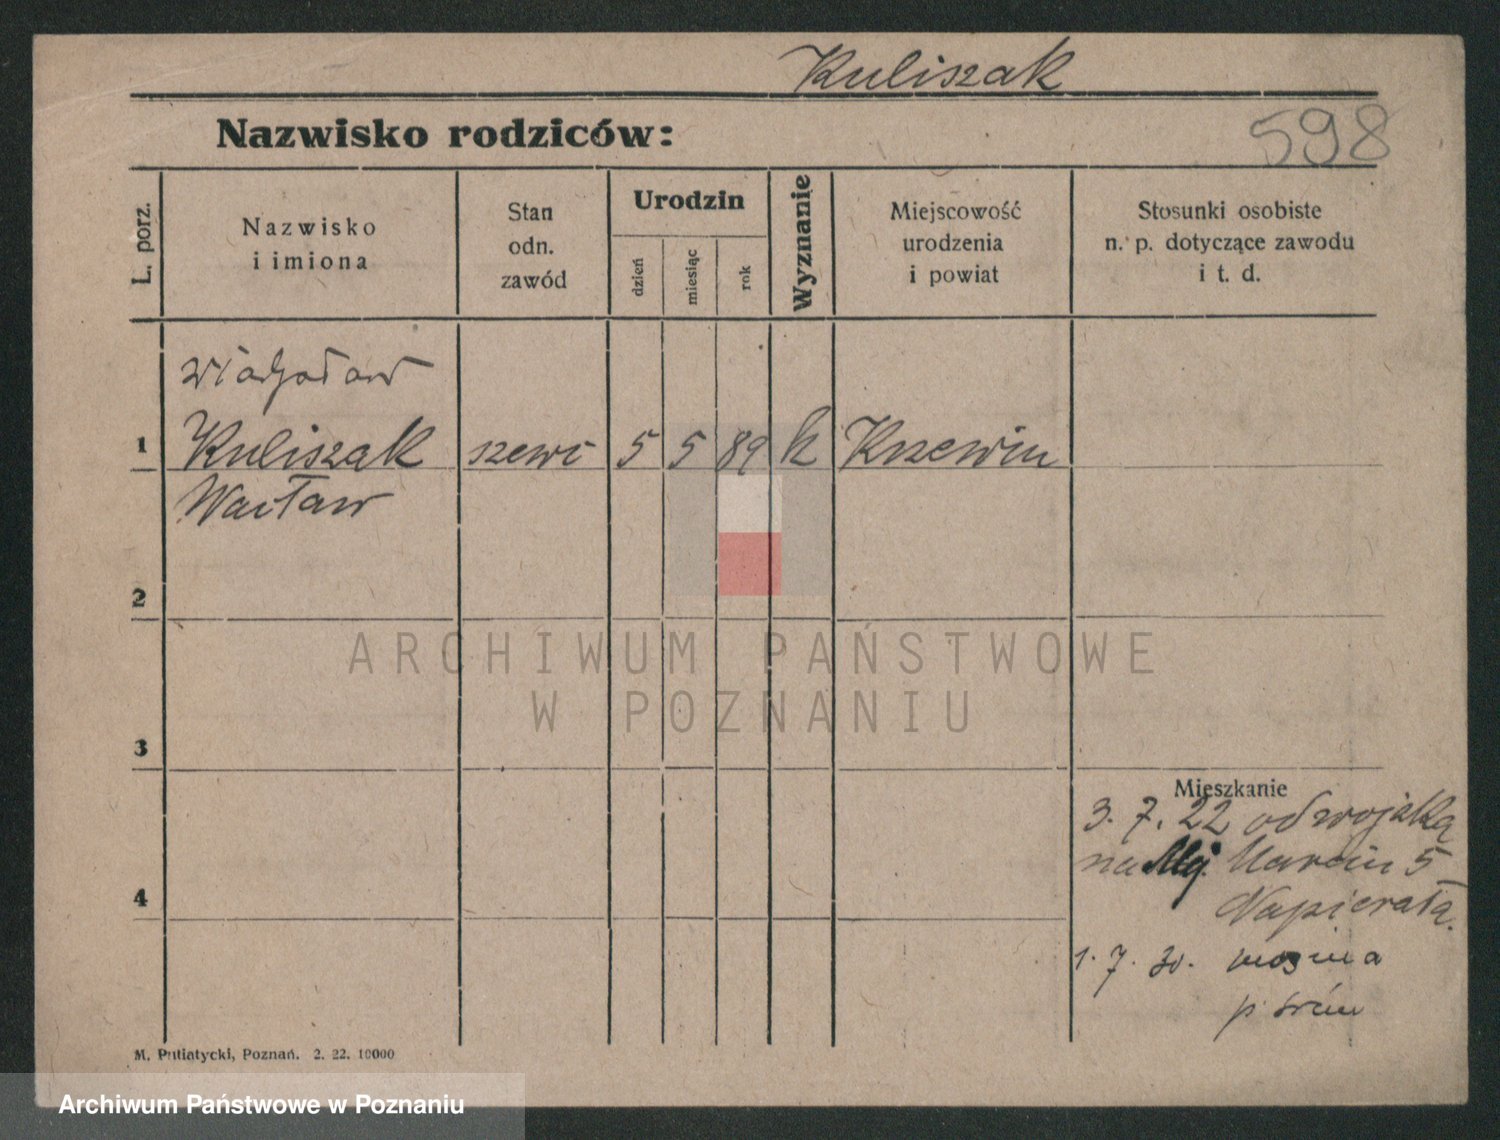 Kuliszak
598
Nazwisko rodziców:
L. porz.
Nazwisko
i imiona
Stan
odn.
zawód
Urodzin
dzień
miesiąc
rok
Wyznanie
Miejscowość
urodzenia
i powiat
Stosunki osobiste
n. p. dotyczące zawodu
i t. d.
Władysław
1 Kuliszak szewc 5 5 89 k Krzewin
Wacław
2
ARCHIWUM PAŃSTWOWE
W POZNANIU
3
Mieszkanie
3. 7. 22 od wojska
na Marcin 5
4
Napierała.
1. 7. 30. Mosina
p. Śrem
M. Putiatycki, Poznań. 2. 22. 10000
Archiwum Państwowe w Poznaniu